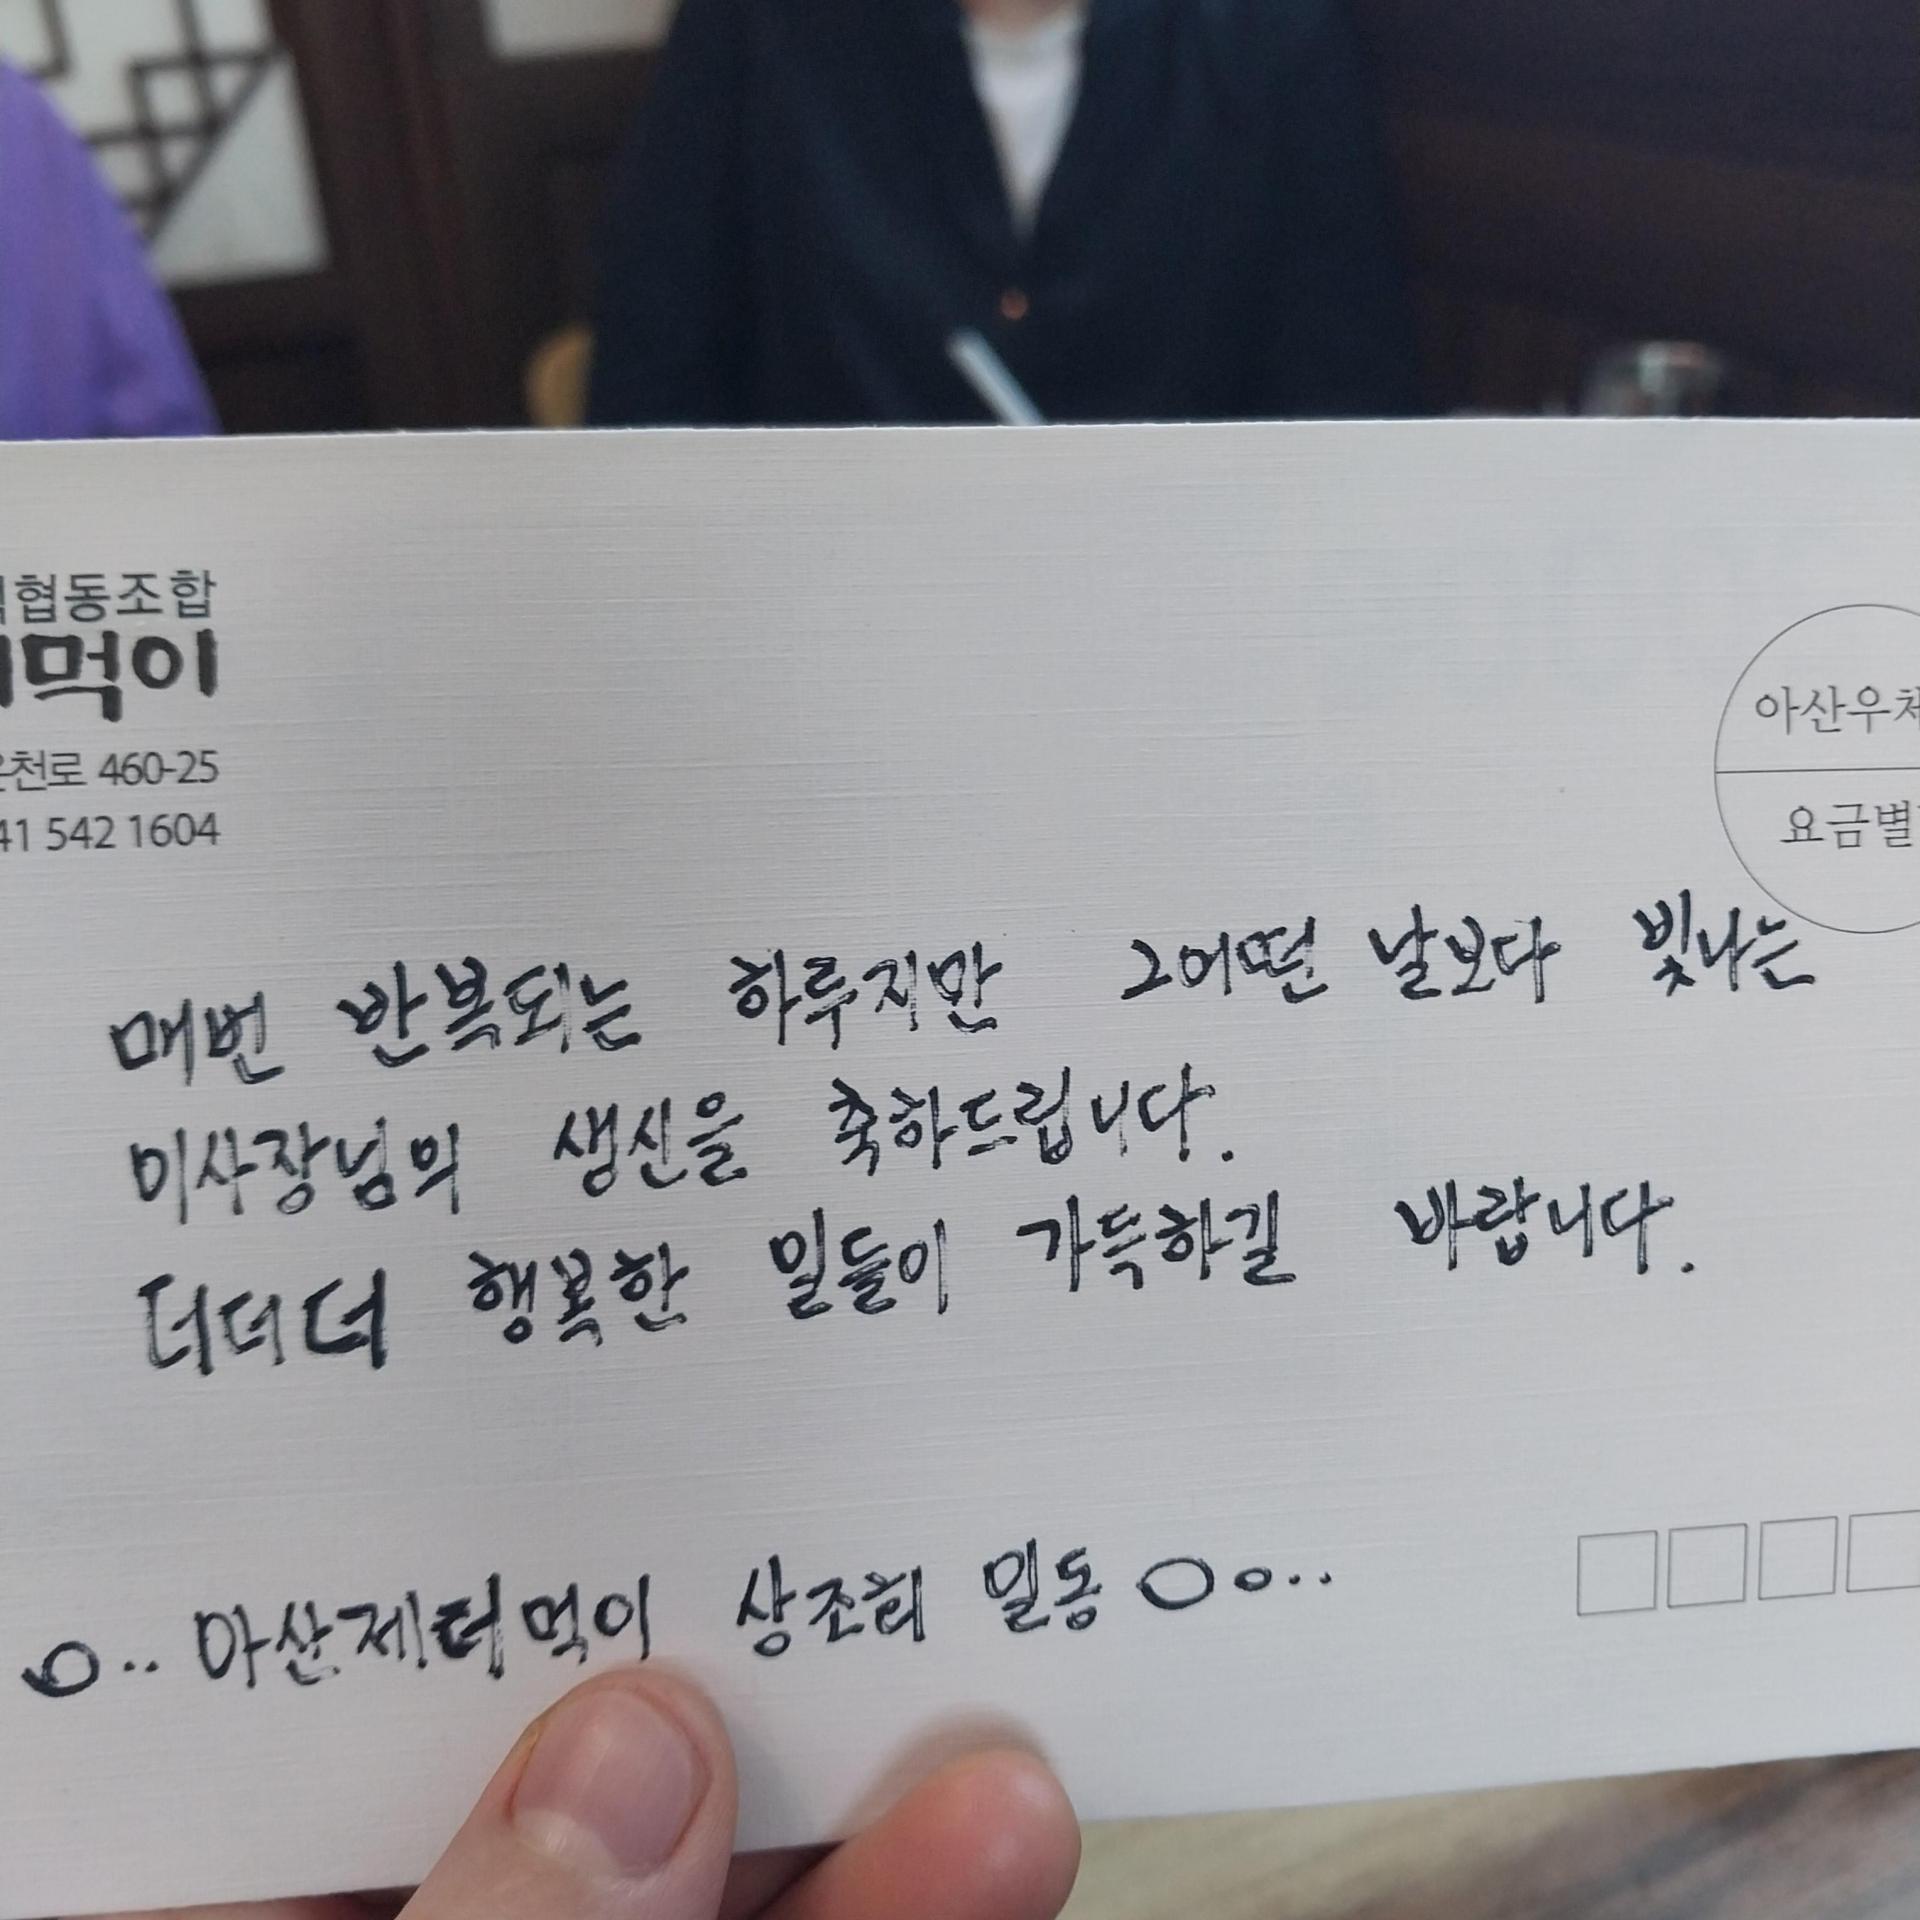 협동조합
먹이
천로 460-25
41 542 1604
아산우체
요금별
매번 반복되는 하루지만 그어떤 날보다 빛나는
이사장님의 생신을 축하드립니다.
더더더 행복한 일들이 가득하길 바랍니다.
아산제터먹이 상조회 일동